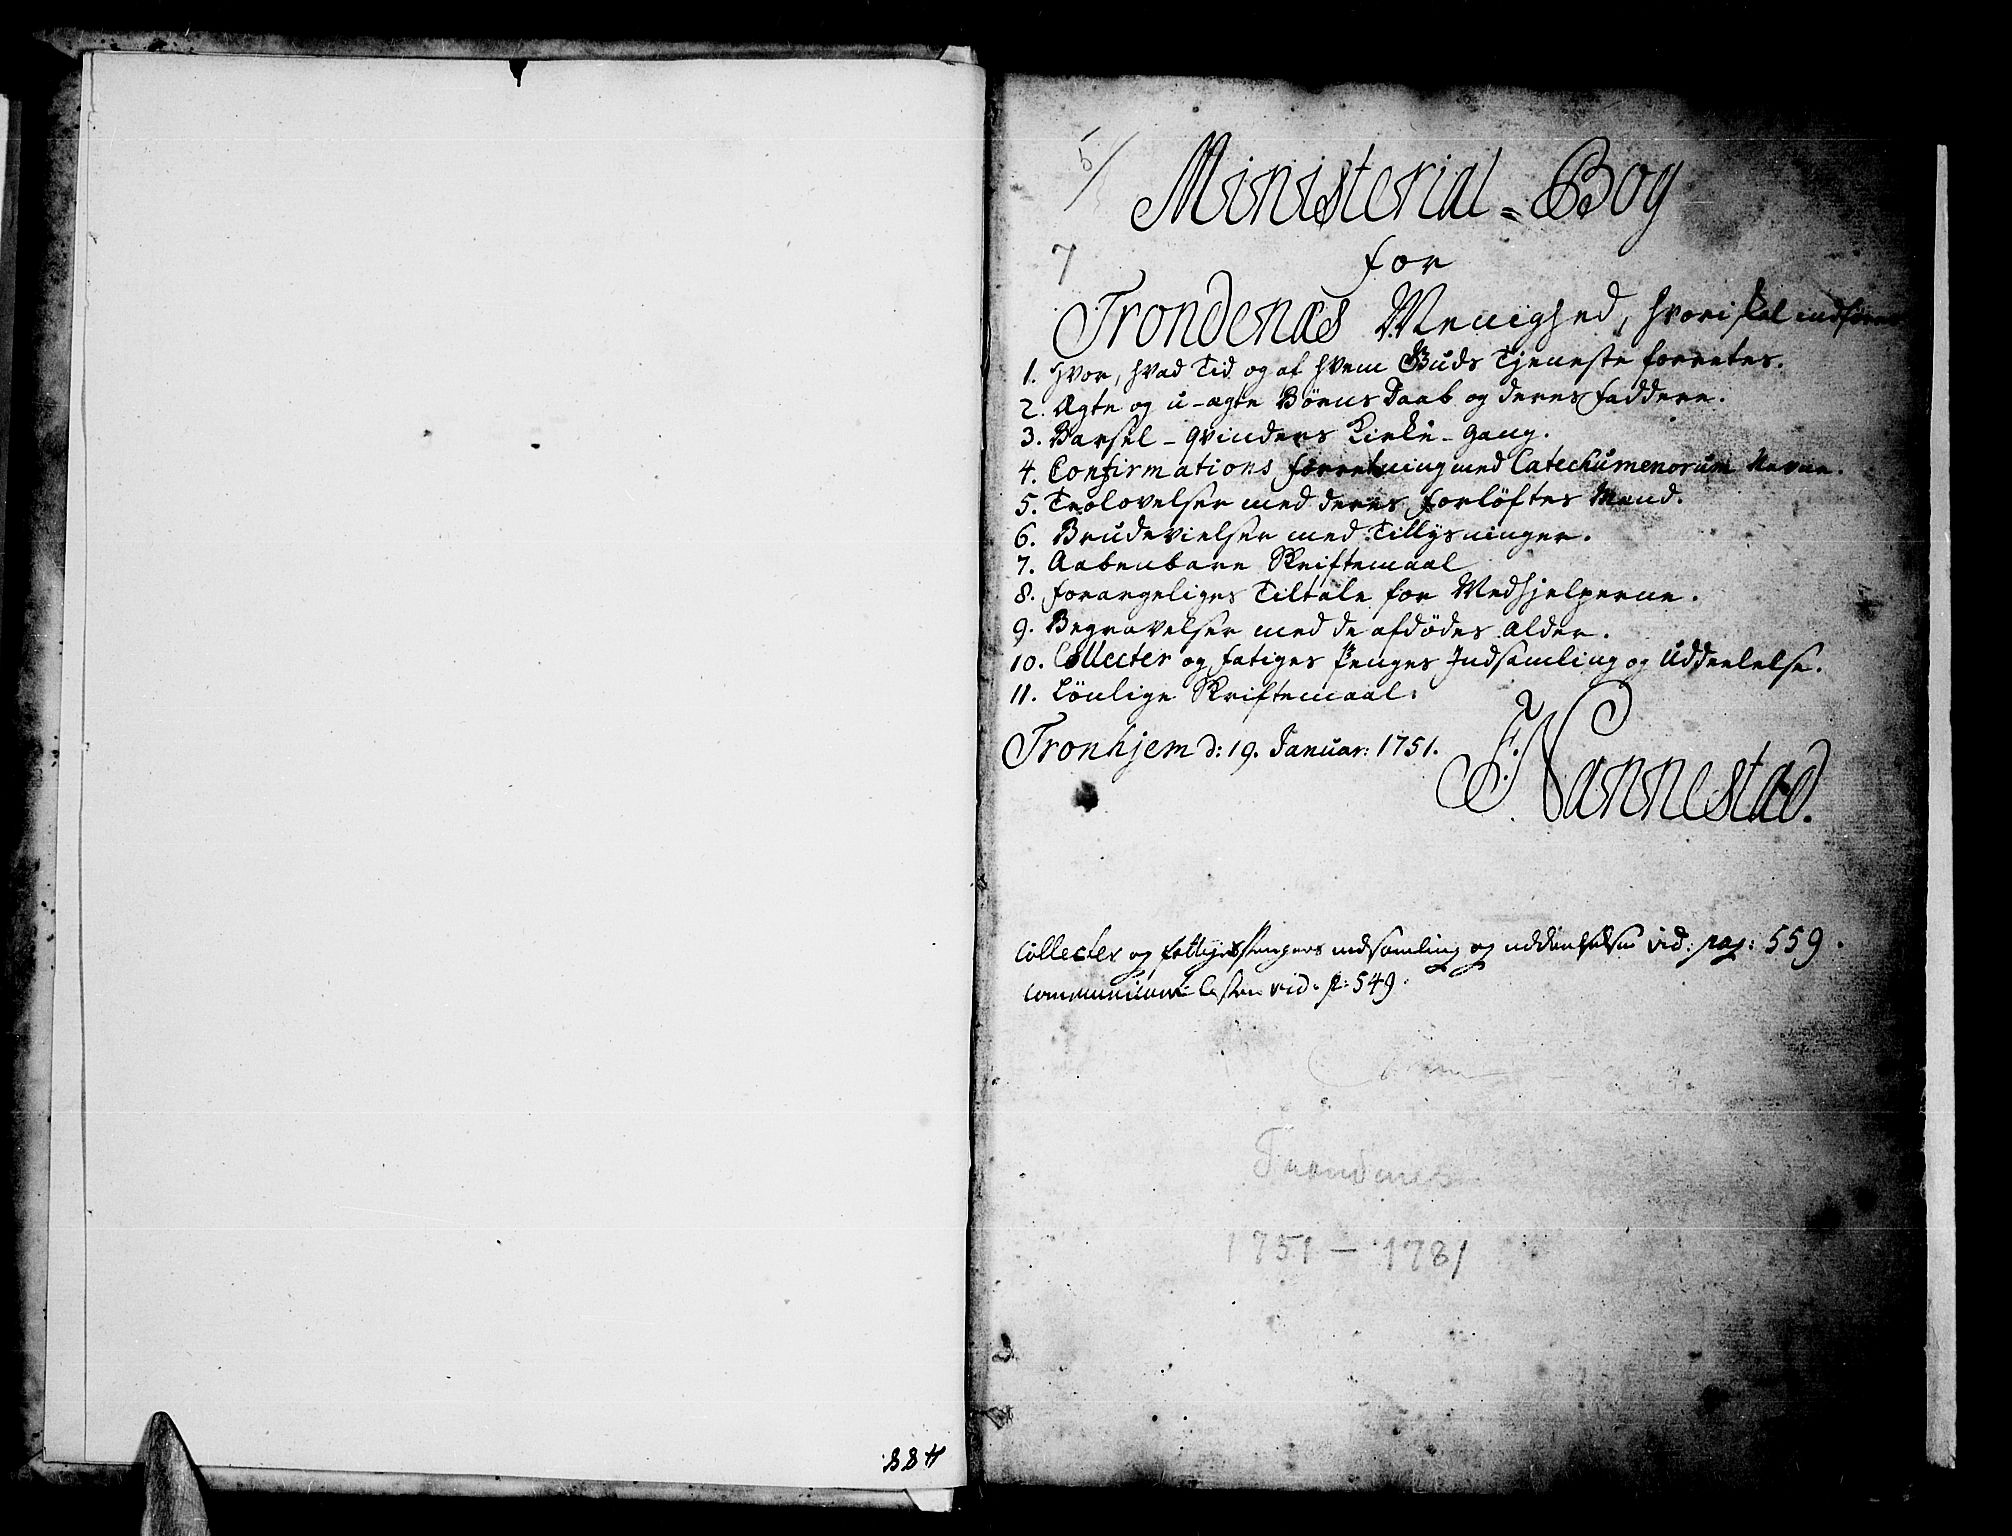 5/
Ministerial=Bog
7
for
Trondenæs Menighed, hvori skal indføres
1. Hvor, hvad Tid og af hvem Guds Tjeneste forretes.
2. Ægte og u-ægte Børns Daab og deres faddere.
3. Barsel-qvinders Kirke-Gang.
4. Confirmations forretning med Catechumenorum Navne.
5. Trolovelser med deres forløftes Mænd.
6. Brudevielser med Tillysninger.
7. Aabenbare Skriftemaal
8. forargeliges Tiltale for Medhjelperne.
9. Begravelser med de afdødes Alder.
10. Collecter og fatiges Penges Indsamling og Uddeelelse.
11. Lönlige Skriftemaal.
Tronhjem d: 19. Januar: 1751.
F. Nannestad.
Collecter og fattiges penges indsamling og uddeelelse vid: pag: 559.
vid. p: 549.
Trondenes
1751 – 1781
488